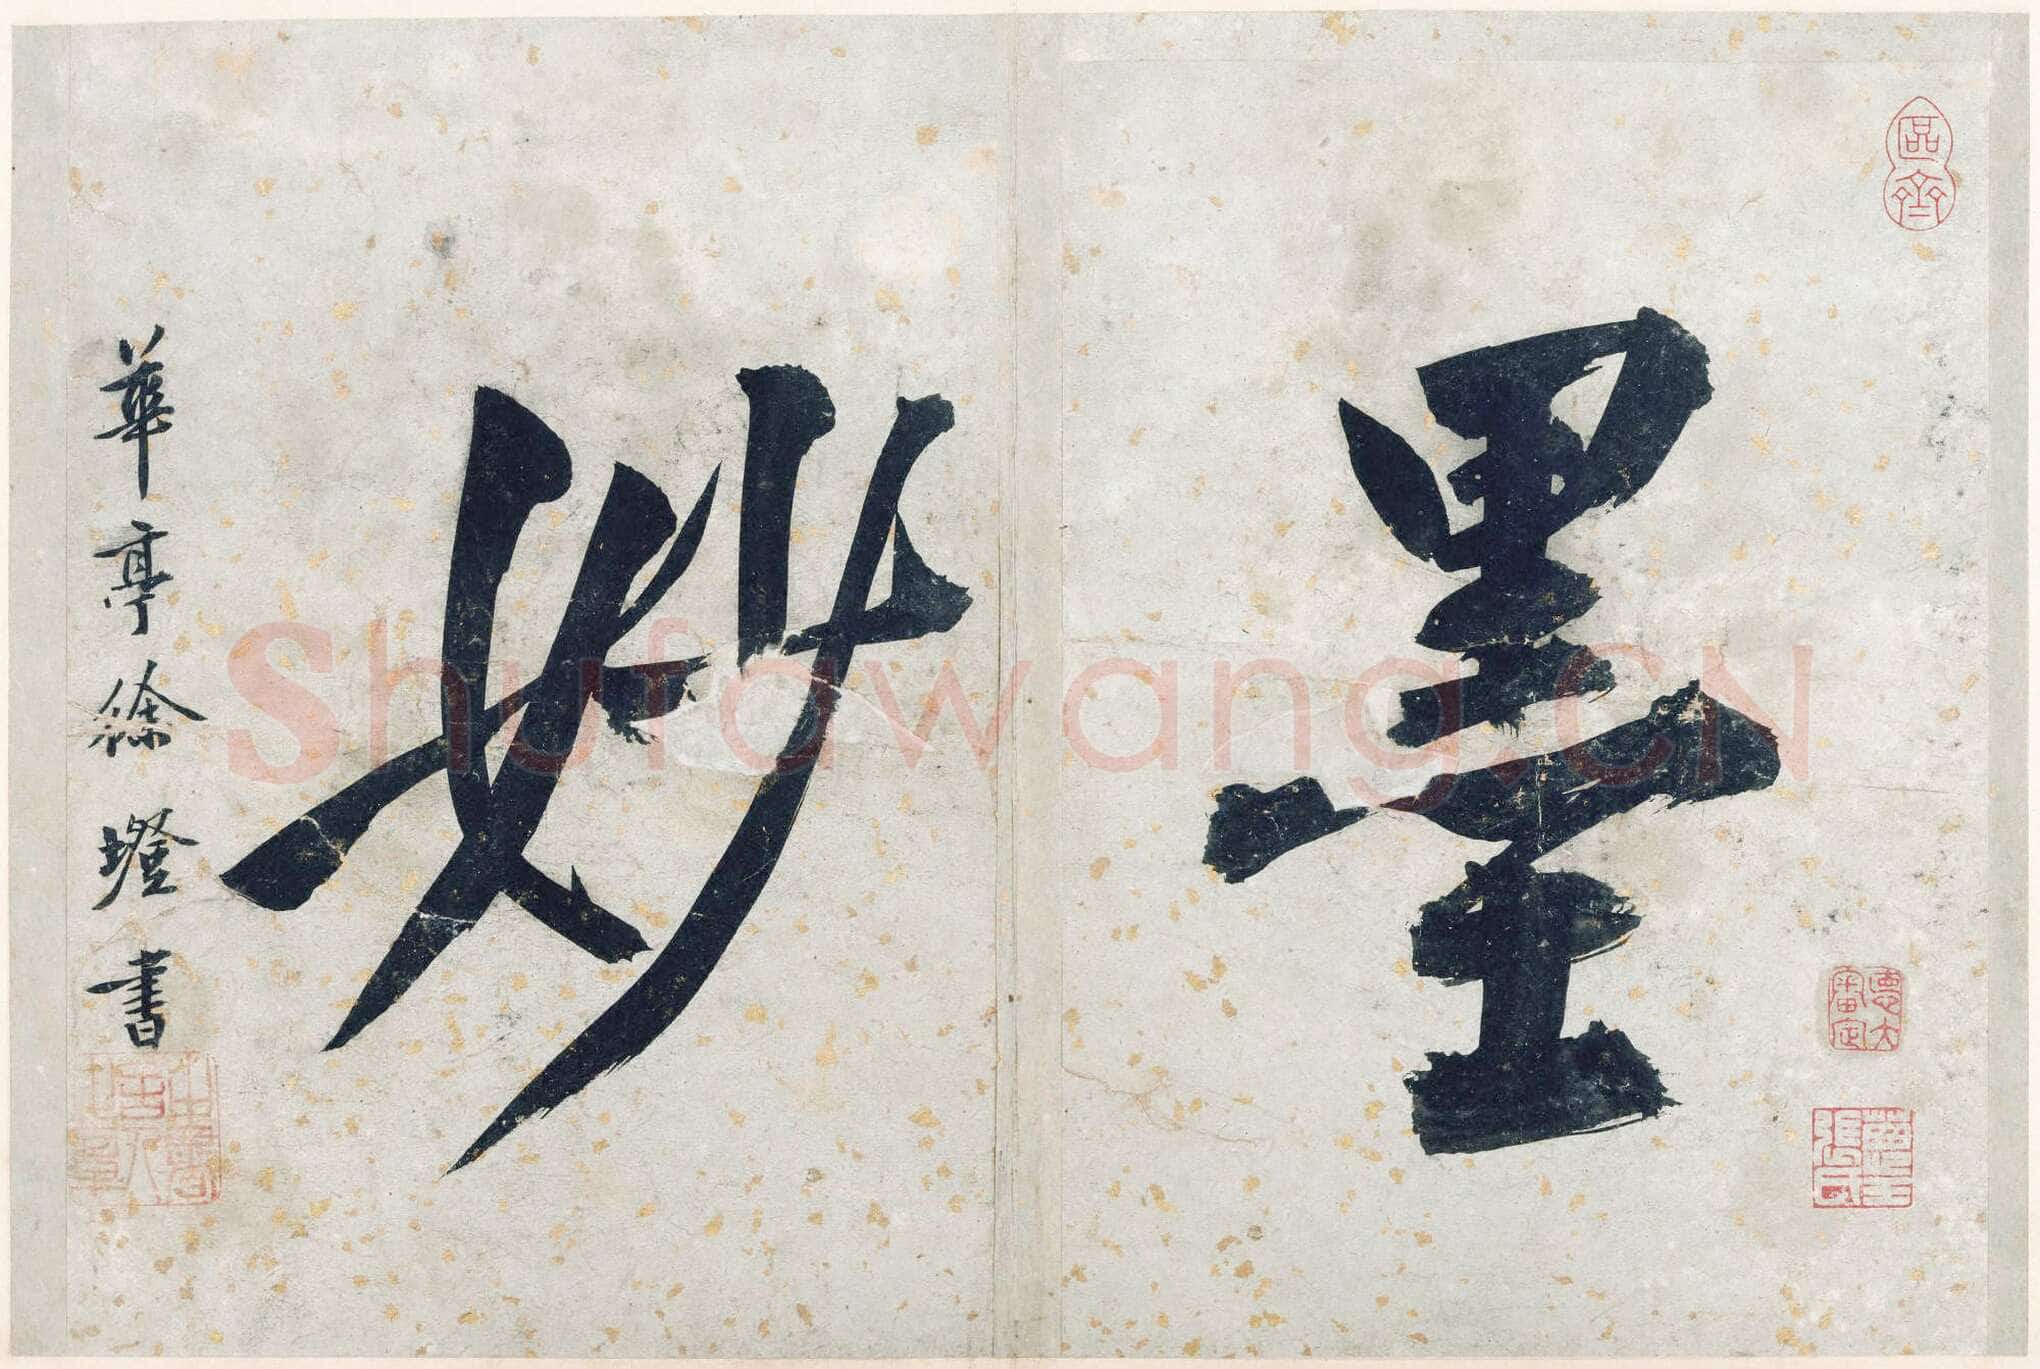 墨
妙
華亭徐璒書
區齋
Shufawang.CN